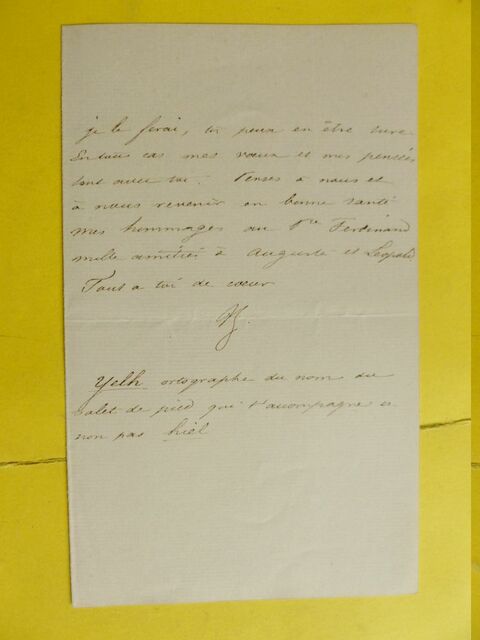 je le ferai, tu peux en être sure
En tous cas mes vœux et mes pensées
sont avec toi. Penses à nous et
à nous revenir en bonne santé
mes hommages au Pce Ferdinand
mille amitiés à Auguste et Leopold.
Tout a toi de cœur
Yelh ortographe du nom du
valet de pied qui t'acompagne et
non pas hiel